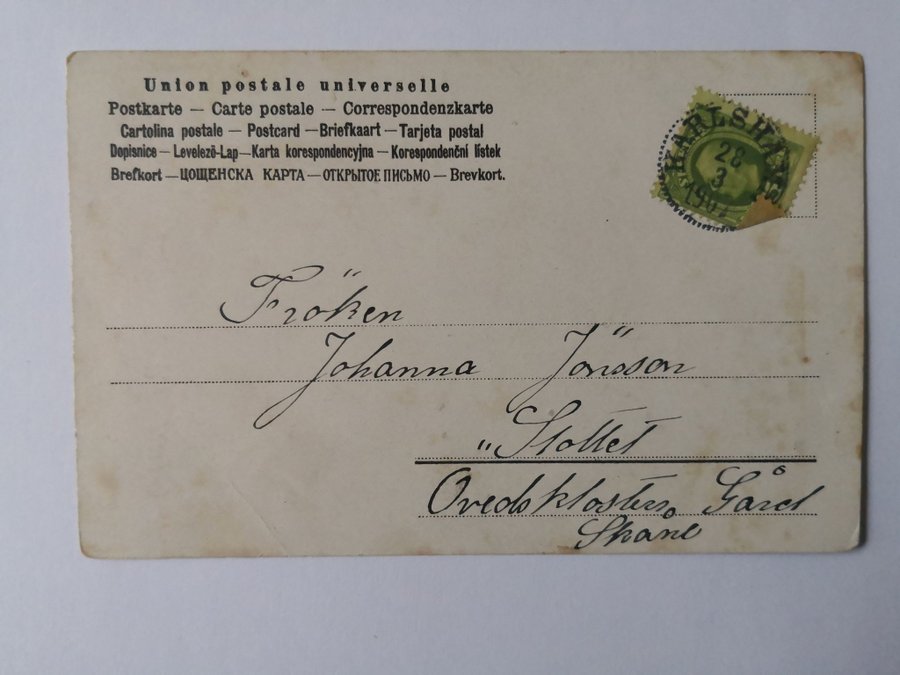 Union postale universelle
Postkarte — Carte postale — Correspondenzkarte
Cartolina postale — Postcard — Briefkaart — Tarjeta postal
Dopisnice — Levelező-Lap — Karta korespondencyjna — Korespondenční lístek
Brefkort — ЦОЩЕНСКА КАРТА — ОТКРЫТОЕ ПИСЬМО — Brevkort.
KARLSHAMN
28
3
Fröken
Johanna Jönsson
"Slottet
Ovedsklosters Gård
Skåne